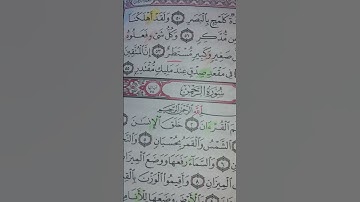 ـدَةٌ كَلَمْحٍ بِالْبَصَرِ ٥٠ وَلَقَدْ أَهْلَكْنَا
مِن مُّدَّكِرٍ ٥١ وَكُلُّ شَىْءٍ فَعَلُوهُ
صَغِيرٍ وَكَبِيرٍ مُّسْتَطَرٌ ٥٣ إِنَّ الْمُتَّقِينَ
فِى مَقْعَدِ صِدْقٍ عِندَ مَلِيكٍ مُّقْتَدِرٍ ٥٥
سُورَةُ الرَّحْمٰن
بِسْمِ اللَّهِ الرَّحْمٰنِ الرَّحِيمِ
ـمَ الْقُرْءَانَ ٢ خَلَقَ الْإِنسَٰنَ
الشَّمْسُ وَالْقَمَرُ بِحُسْبَانٍ ٥
وَالسَّمَآءَ رَفَعَهَا وَوَضَعَ الْمِيزَانَ
الْمِيزَانِ ٨ وَأَقِيمُوا الْوَزْنَ بِالْقِـ
وَالْأَرْضَ وَضَعَهَا لِلْأَنَامِ